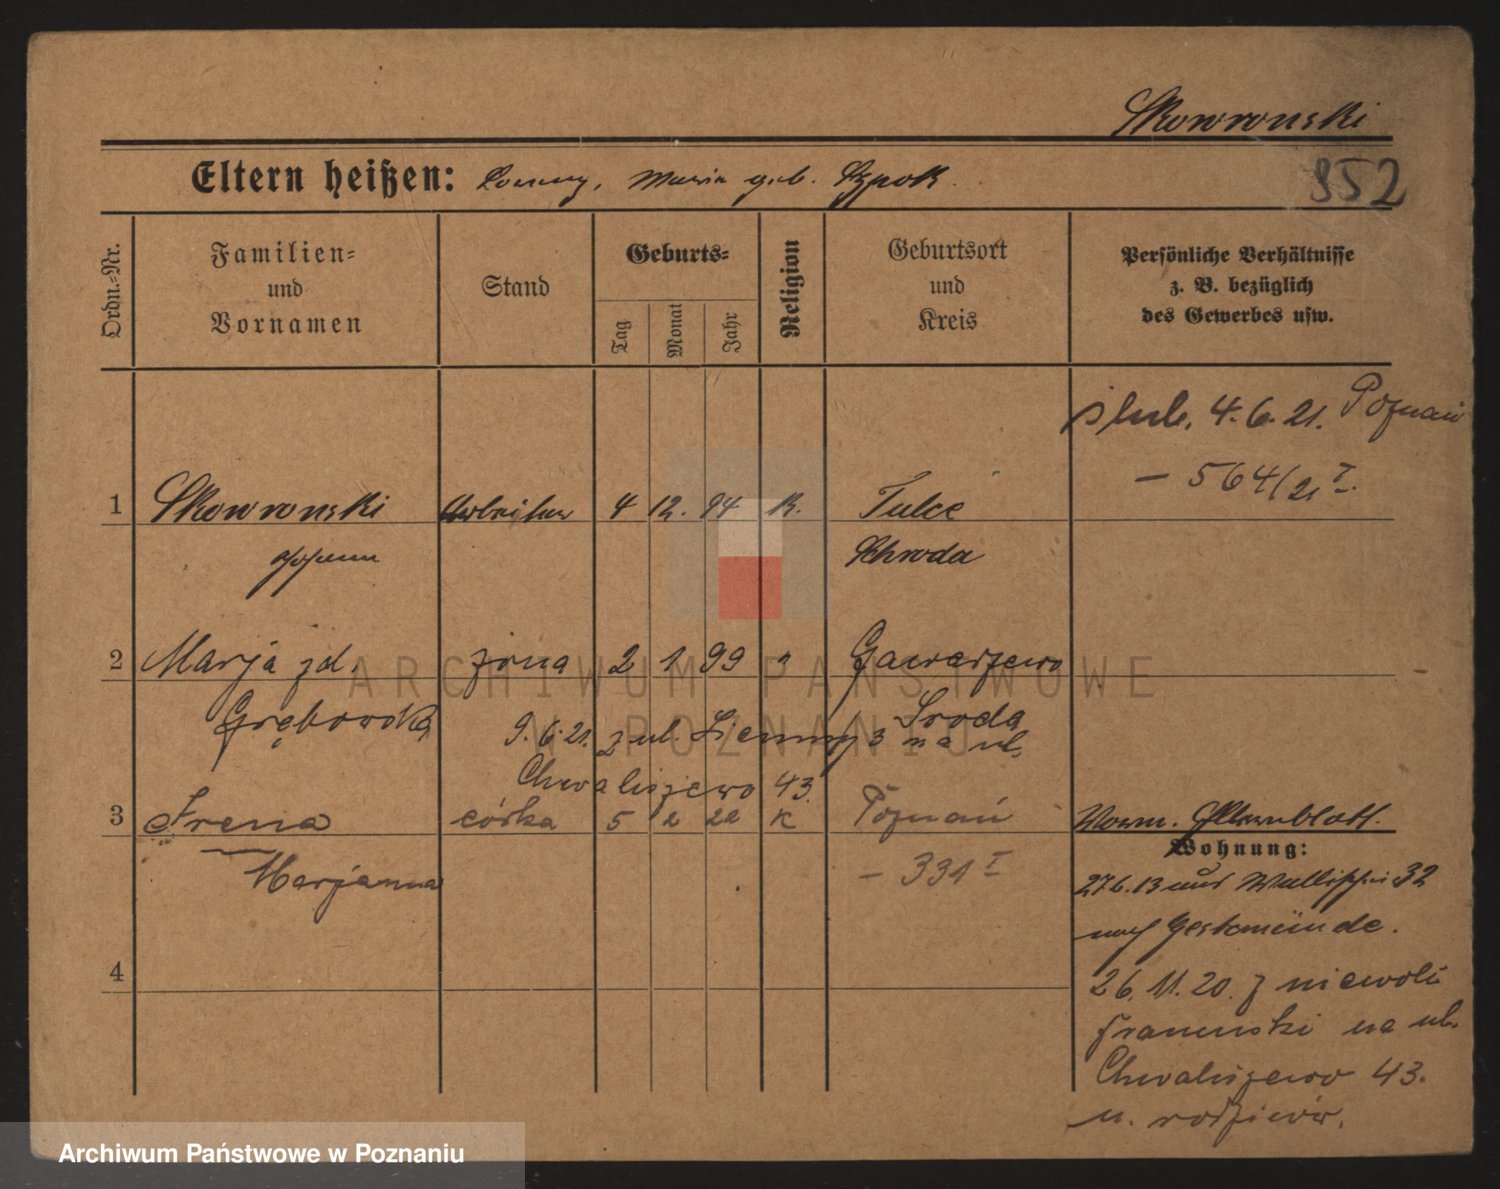 Skowronski
Eltern heißen: Maria geb. Szpok
852
Ordn.-Nr.
Familien-
und
Vornamen
Stand
Geburts-
Tag
Monat
Jahr
Religion
Geburtsort
und
Kreis
Persönliche Verhältnisse
z. B. bezüglich
des Gewerbes usw.
ślub. 4.6.21. Poznań
– 564/21 I.
1 Skowronski Arbeiter 4 12. 94 K. Tulce
Johann Schroda
2 Marja zd. żona 2 1 99 Gawarzewo
Grębowska Środa
9.6.21. z ul. Sienny 3 na ul.
Chwaliszewo 43.
3 Irena córka 5 2 22 K Poznań
Marjanna – 331 I
Vorm. Elternblatt.
Wohnung:
27 6. 13 aus Wallischei 32
nach Gerkmünde.
4
26. 11. 20. z niewoli
francuski na ul.
Chwaliszewo 43.
u. rodziców.
ARCHIWUM PAŃSTWOWE
W POZNANIU
Archiwum Państwowe w Poznaniu